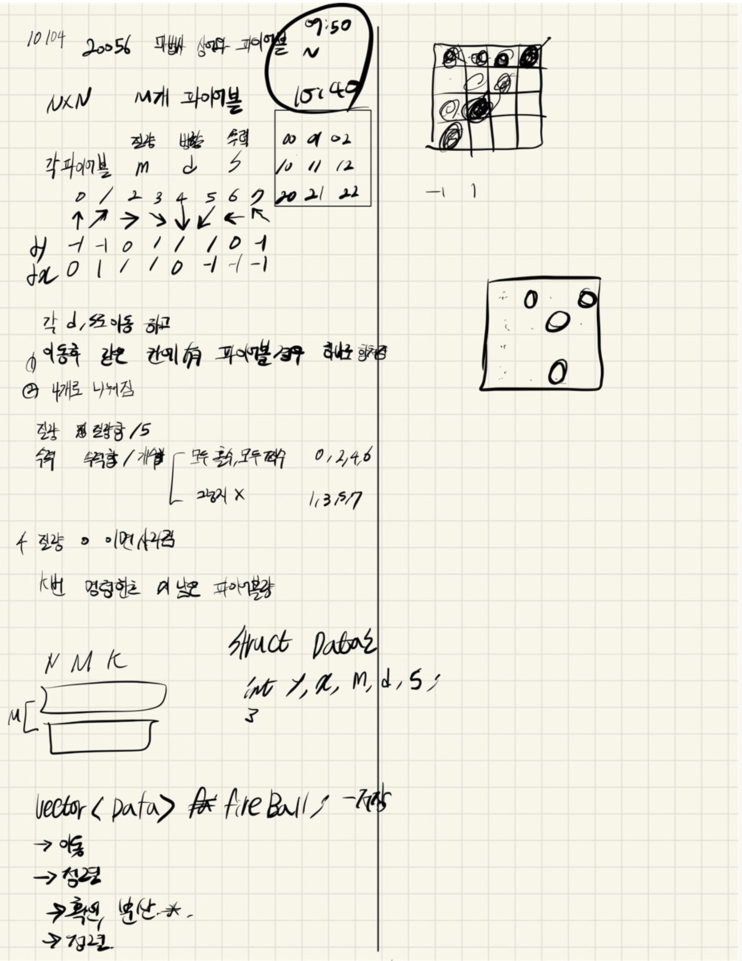 10/04 20056 마법사 상어와 파이어볼
09:50
~
10:40
NXN M개 파이어볼
질량 방향 속력
각 파이어볼 m d s
00 01 02
10 11 12
20 21 22
0 1 2 3 4 5 6 7
↑ ↗ → ↘ ↓ ↙ ← ↖
dy -1 -1 0 1 1 1 0 -1
dx 0 1 1 1 0 -1 -1 -1
-1 1
각 d, s로 이동 하고
① 이동후 같은 칸에 有 파이어볼 하나로 합쳐짐
② 4개로 나눠짐
질량 질량합/5
속력 속력합/개수 모두 홀수, 모두 짝수 0,2,4,6
그렇지 X 1,3,5,7
질량 0 이면 사라짐
K번 명령한후 남은 파이어볼량
N M K
M
struct Data {
int y, x, m, d, s;
}
vector<Data> fireBall; - 저장
→ 이동
→ 정렬
→ 확인, 분산 *.
→ 정렬